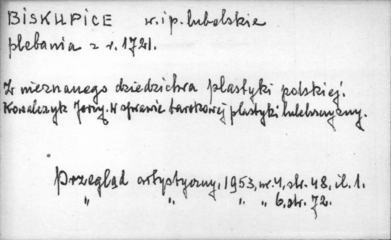 BISKUPICE w. i p. lubelskie
plebania z r. 1721.
Z nieznanego dziedzictwa plastyki polskiej.
Kowalczyk Jerzy. W sprawie barokowej plastyki
Przegląd artystyczny, 1953, nr. 4, str. 48, il. 1.
" " " " 6, str. 72.